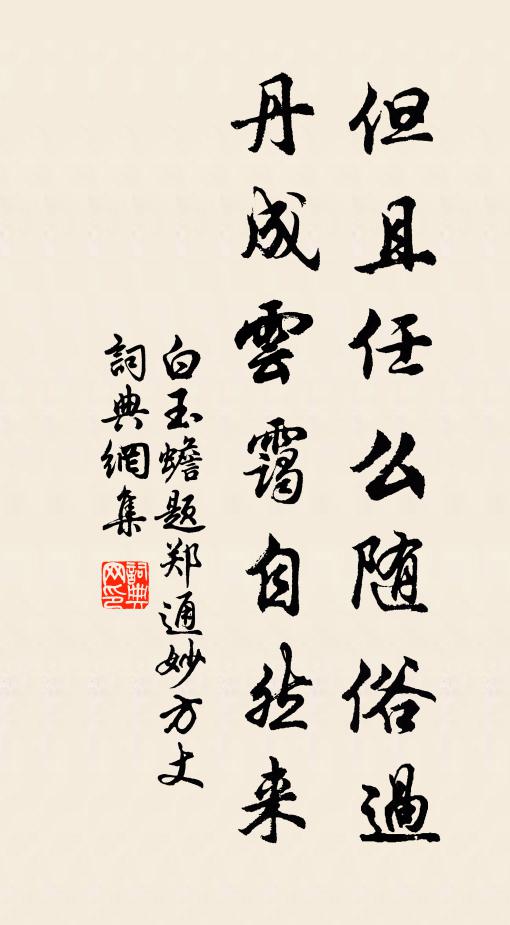 但且任么随俗過
丹成雲靄自然来
白玉蟾题郑通妙方丈
詞典網集
詞典网印